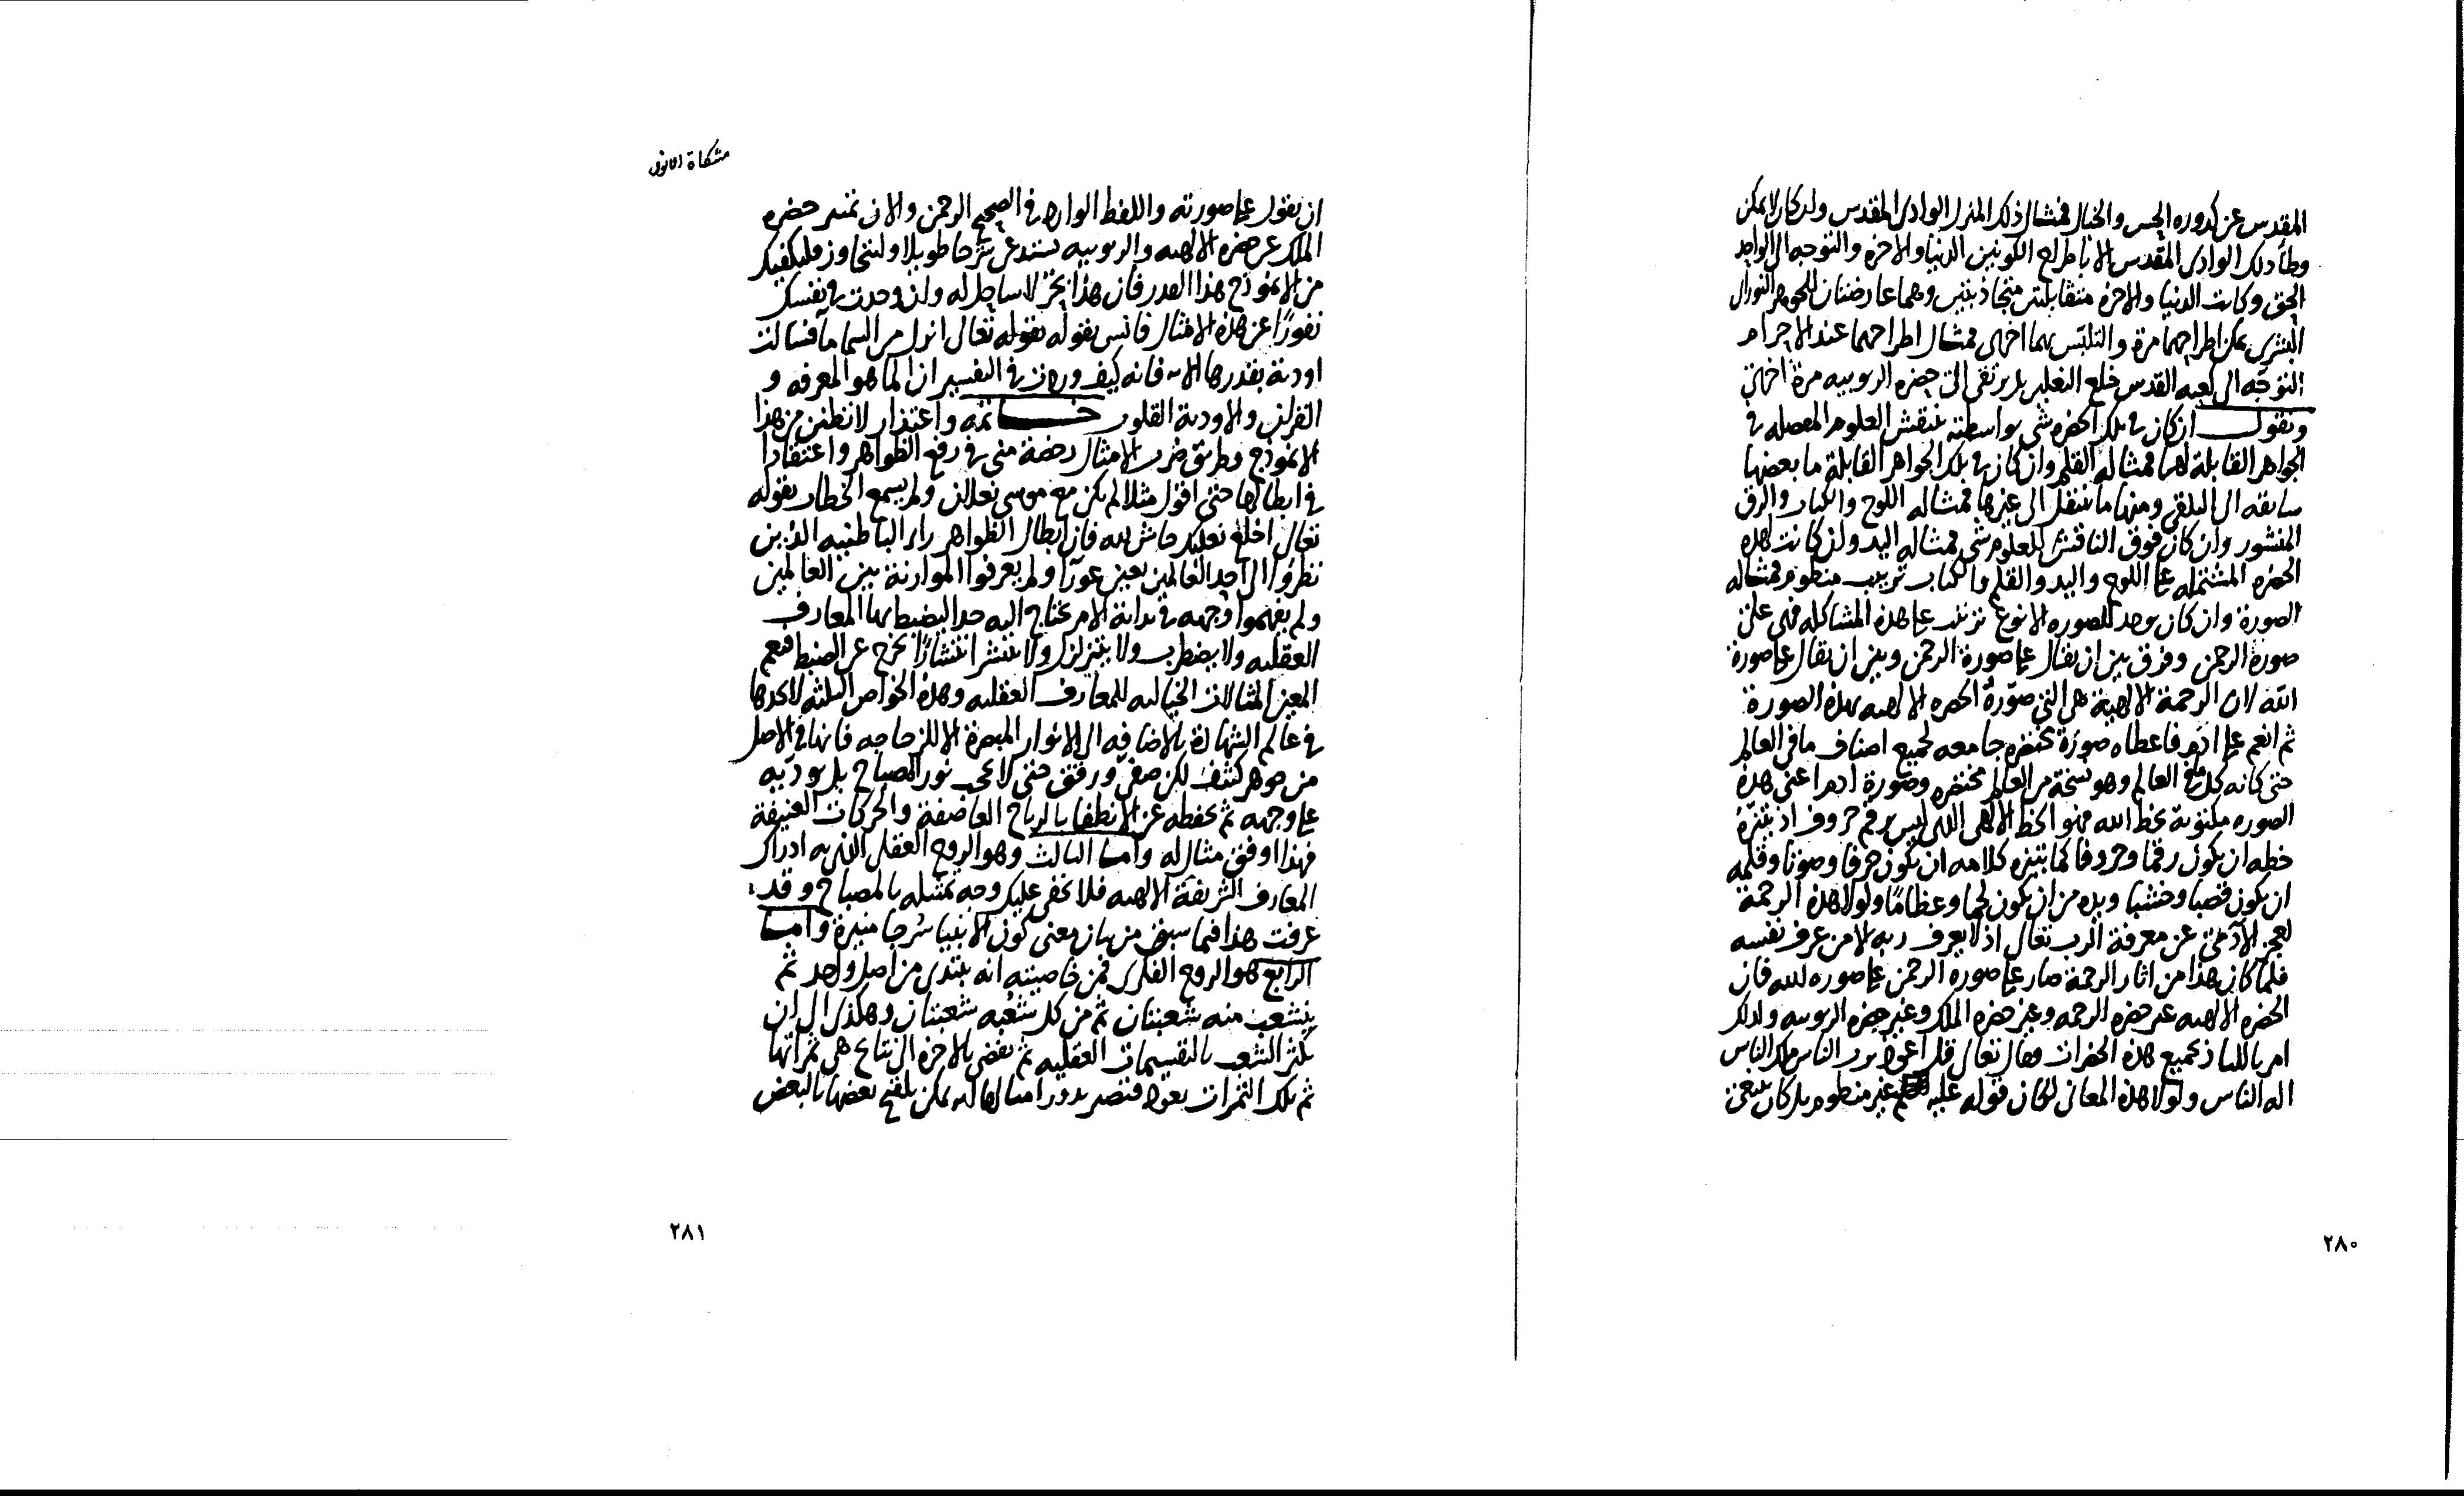 المقدس عن كدورة الحس والخيال فمثال ذلك المنزل الوادى المقدس وان كان لا يمكن
وطأ ذلك الوادى المقدس الا باطراح الكونين الدنيا والاخرة والتوجه الى الواحد
الحق وكانت الدنيا والاخرة متقابلتين متحاذيتين وهما عارضتان للجوهر النورانى
البشرى يمكن اطراحهما مرة والتلبس بهما اخرى فمثال اطراحهما عند الاحرام
التوجه الى كعبه القدس خلع النعلين بل نرتقى الى حضره الربوبيه مرة اخرى
ونقول ان كان فى تلك الحضره شى بواسطته تنتقش العلوم المفصله فى
الجواهر القابلة لها فمثاله القلم وان كان فى تلك الجواهر القابلة ما بعضها
سابقه الى التلقى ومنها ما تنتقل الى غيرها فمثاله اللوح والكتاب والرق
المنشور وان كان فوق الناقش للعلوم شى فمثاله اليد وان كانت لهذه
الحضره المشتمله على اللوح واليد والقلم والكتاب ترتيب منظوم فمثاله
الصورة وان كان يوجد للصوره الانوع ترتيب على هذه المشاكله فهى على
صورة الرحمن وفرق بين ان يقال على صورة الرحمن وبين ان يقال على صورة
الله لان الرحمة الالهية هى التى صورة الحضره الالهيه بهذه الصورة
ثم انعم على ادم فاعطاه صورة مختصره جامعه لجميع اصناف ما فى العالم
حتى كانه كل ما فى العالم وهو نسخة من العالم مختصره وصورة ادم اعنى هذه
الصوره مكتوبة بخط الله فهو الخط الالهى الذى ليس برقم حروف اذ يتنزه
خطه ان يكون رقما وحروفا كما يتنزه كلامه ان يكون حرفا وصوتا وقلمه
ان يكون قصبا وخشبا ويده من ان يكون لحما وعظاما ولولا هذه الرحمة
لعجز الآدمى عن معرفة الرب تعالى اذ لا يعرف ربه الا من عرف نفسه
فلما كان هذا من اثار الرحمة صار على صورة الرحمن على صوره لله فان
الحضره الالهيه غير حضره الرحمه وغير حضره الملك وغير حضره الربوبيه ولذلك
امر بالعياذ بجميع هذه الحضرات فقال تعالى قل اعوذ برب الناس ملك الناس
اله الناس ولولا هذه المعانى لكان قوله عليه غير منظوم بل كان ينبغى
٢٨٠
مشكاة الانوار
ان يقول على صورته واللفظ الوارد فى الصحيح الرحمن والان تميز حضره
الملك عن حضره الالهيه والربوبيه تستدعى شرحا طويلا ولنتجاوز فليكفيك
من الانموذج هذا القدر فان هذا بحر لا ساحل له وان وجدت فى نفسك
نفورا عن هذه الامثال فانس بقوله تعالى انزل من السما ما فسالت
اودية بقدرها الايه فانه كيف ورد فى التفسير ان الما هو المعرفه و
القران والاودية القلوب خاتمه واعتذار لا تظنن من هذا
الانموذج وطريق ضرب الامثال رخصة منى فى رفع الظواهر واعتقادا
فى ابطالها حتى اقول مثلا لم يكن مع موسى نعلان ولم يسمع الخطاب بقوله
تعالى اخلع نعليك حاش لله فان ابطال الظواهر راى الباطنيه الذين
نظروا الى احد العالمين بعين عورا ولم يعرفوا الموازنة بين العالمين
ولم يفهموا وجهه فى بداية الامر يحتاج اليه جدا ليضبط بها المعارف
العقليه ولا يضطرب ولا يتزلزل ولا ينتشر انتشارا يخرج عن الضبط فنعم
المعين المثالات الخياليه للمعارف العقليه وهذه الخواص الثلثه لا نجدها
فى عالم الشهادة بالاضافه الى الانوار المبصرة الا للزجاجه فانها فى الاصل
من جوهر كثيف لكن صفى ورقق حتى لا يحجب نور المصباح بل يوديه
على وجهه ثم يحفظه عن الانطفا بالرياح العاصفة والحركات العنيفة
فهذا اوفق مثال له واما الثالث وهو الروح العقلى الذى به ادراك
المعارف الشريفة الالهيه فلا يخفى عليك وجه تمثيله بالمصباح وقد
عرفت هذا فيما سبق من بيان معنى كون الانبيا سرجا منيرة واما
الرابع هو الروح الفكرى فمن خاصيته انه يبتدى من اصل واحد ثم
يتشعب منه شعبتان ثم من كل شعبه شعبتان وهكذى الى ان
يكثر الشعب بالتقسيمات العقليه ثم يفضى بالاخرة الى نتايج هى ثمراتها
ثم تلك الثمرات يعود فتصير بذورا امثالها اذ يمكن تلقيح بعضها بالبعض
٢٨١